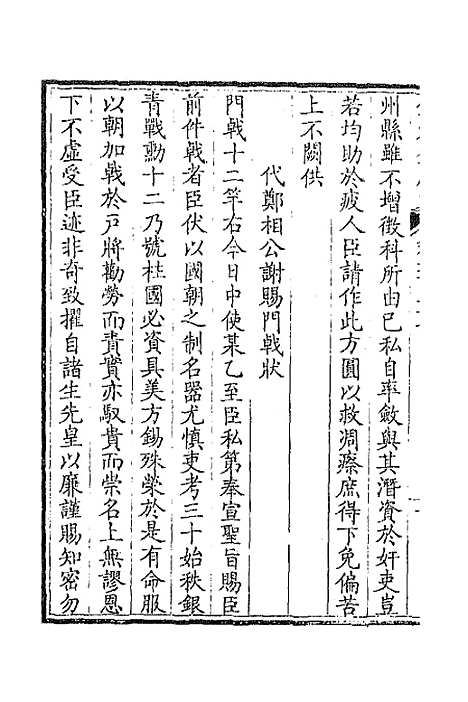 州縣雖不增徴科所由已私自率斂與其潛資於奸吏豈
若均助於疲人臣請作此方圓以救凋瘵庶得下免偏苦
上不闕供
代鄭相公謝賜門戟狀
門戟十二竿右今日中使某乙至臣私第奉宣聖旨賜臣
前件戟者臣伏以國朝之制名器尤慎吏考三十始秩銀
青戰勳十二乃號柱國必資具美方錫殊榮於是有命服
以朝加戟於戸將勸勞而責實亦馭貴而崇名上無謬恩
下不虛受臣迹非奇致擢自諸生先皇以廉謹賜知密勿